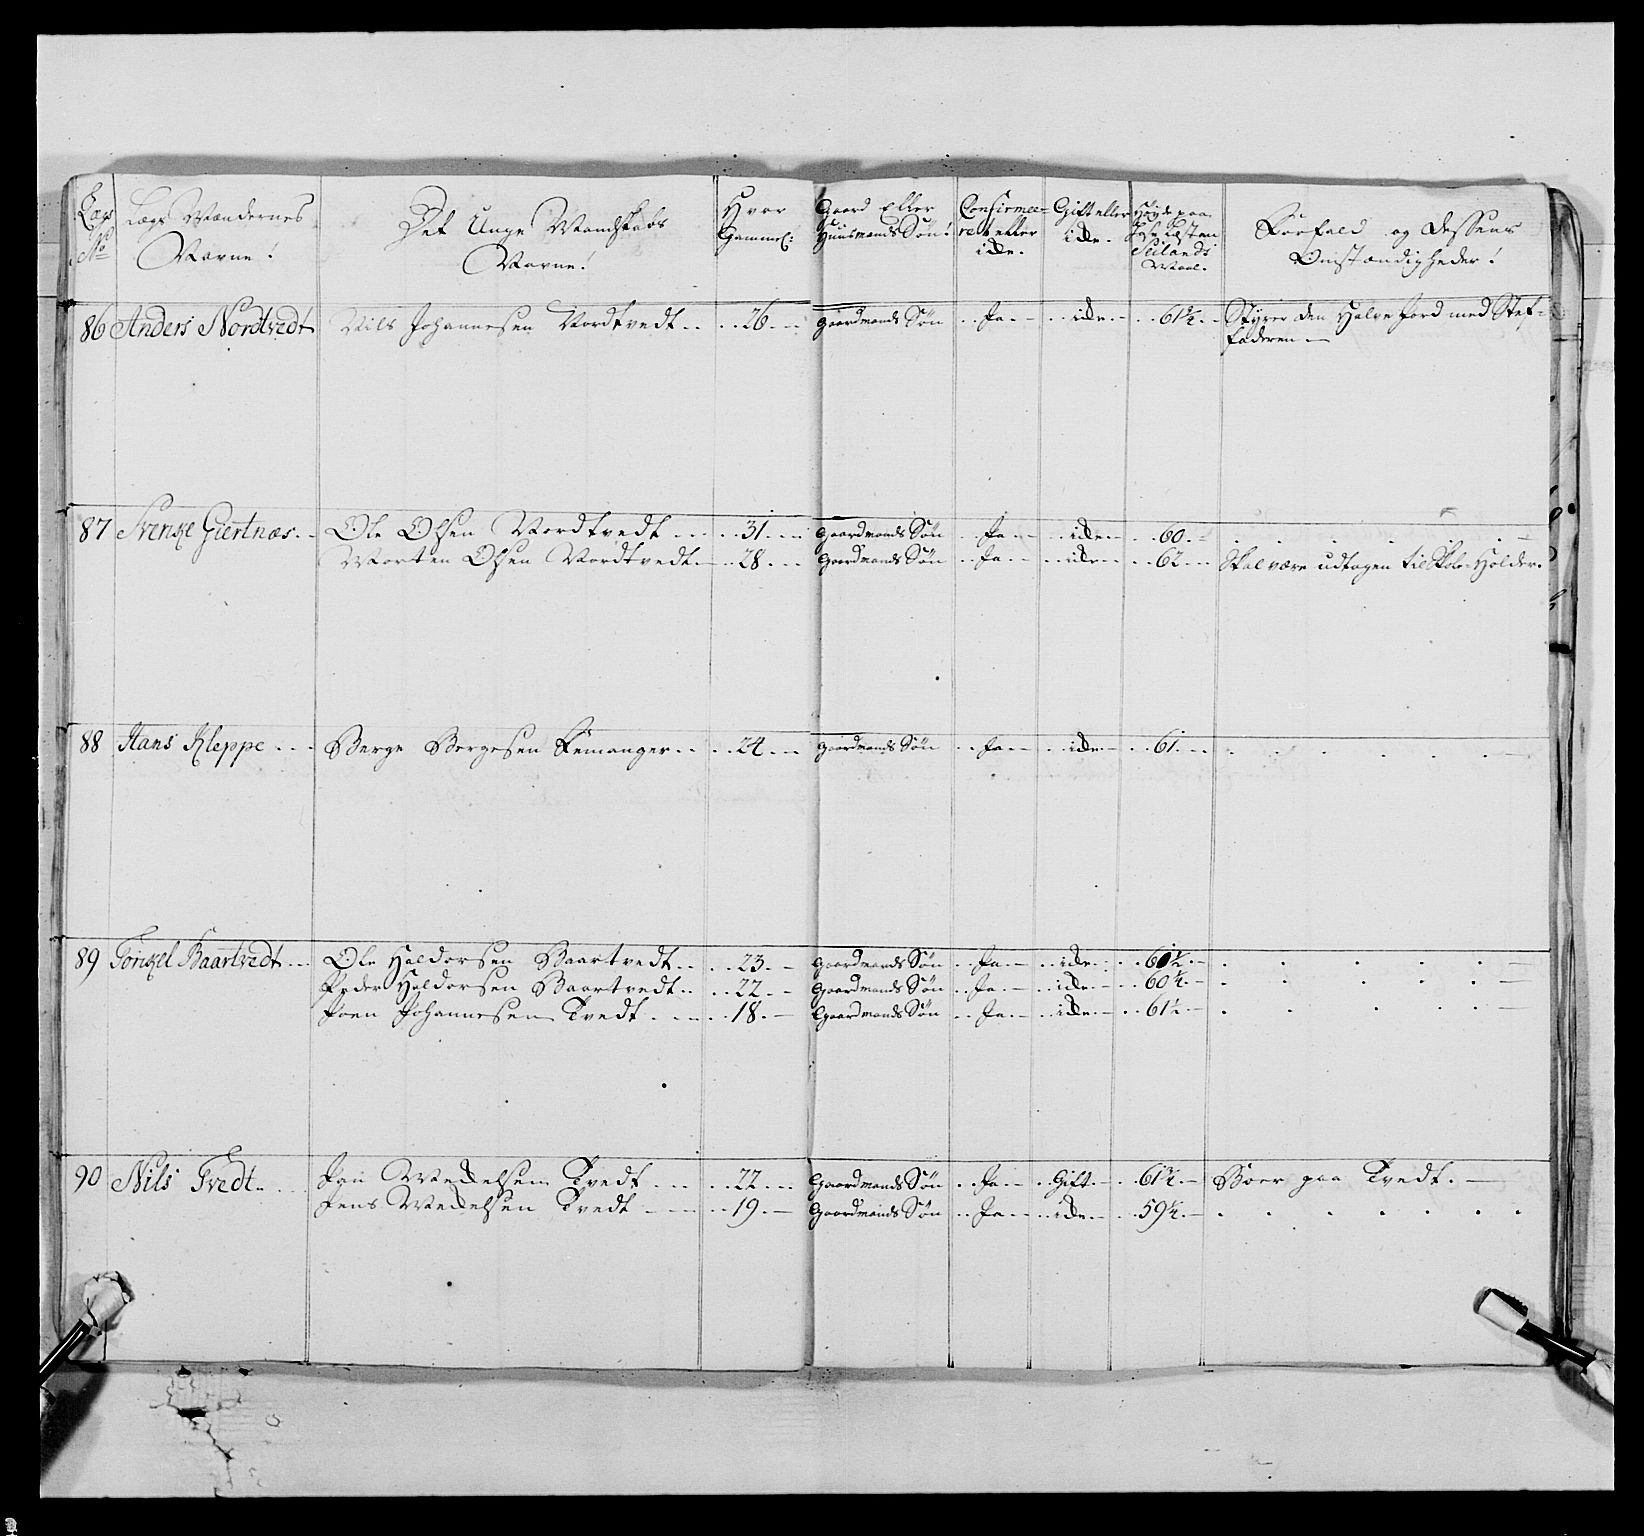 Lægs No
Lægs Mændernes Navne!
Det Unge Mandskabs Navne!
Hvor Gammel:
Gaard Eller Huusmands Søn!
Confirmeeret eller icke.
Gift eller icke.
Høyde paa Sielands Maal.
Forfald og dessens Omstændigheder!
86 Anders Nordtvedt Nils Johannesen Nordtvedt 26 Gaardmands Søn Ja icke Styrer den Halve Jord med Stef-
faderen
87 Svenke Giertnæs Ole Olsen Nordtvedt 31 Gaardmands Søn Ja icke 60
Morten Olsen Nordtvedt 28 Gaardmands Søn Ja icke 62 Skal være udtagen til Skole-Holder.
88 Hans Kleppe Berge Bergesen Femanger 24 Gaardmands Søn Ja icke 61
89 Torkel Baartvedt Ole Haldorsen Baartvedt 23 Gaardmands Søn Ja icke
Peder Haldorsen Baartvedt 22 Gaardmands Søn Ja icke 60¼
Joen Johannesen Tvedt 18 Gaardmands Søn Ja icke 61½
90 Nils Tvedt Jan Mickelsen Tvedt 22 Gaardmands Søn Ja Gift 61¾ Boer paa Tvedt.
Jens Mickelsen Tvedt 19 Gaardmands Søn Ja icke 59¼